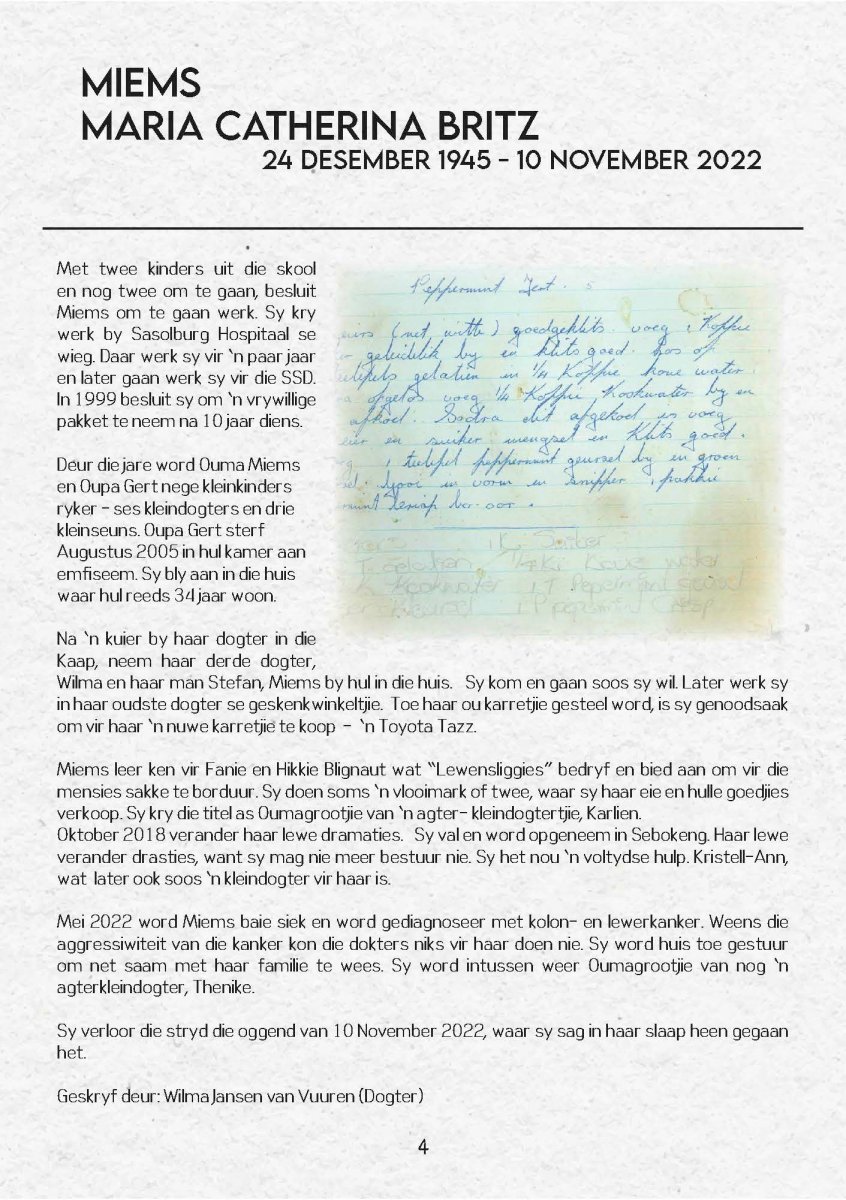 MIEMS
MARIA CATHERINA BRITZ
24 DESEMBER 1945 - 10 NOVEMBER 2022
Met twee kinders uit die skool
en nog twee om te gaan, besluit
Miems om te gaan werk. Sy kry
werk by Sasolburg Hospitaal se
wieg. Daar werk sy vir ‘n paar jaar
en later gaan werk sy vir die SSD.
In 1999 besluit sy om ‘n vrywillige
pakket te neem na 10 jaar diens.
Deur die jare word Ouma Miems
en Oupa Gert nege kleinkinders
ryker - ses kleindogters en drie
kleinseuns. Oupa Gert sterf
Augustus 2005 in hul kamer aan
emfiseem. Sy bly aan in die huis
waar hul reeds 34 jaar woon.
Peppermint Tert.
(net witte) goedgeklits. voeg 1 Koffie
geleidelik by en klits goed. Los op
gelatien in 1/4 Koffie koue water.
opgelos voeg 1/4 Koffie Kookwater by en
afkoel. Sodra dit afgekoel is voeg
eier en suiker mengsel en klits goed.
1 teelepel peppermint geursel by en groen
Gooi in vorm en snipper 1 pakkie
1 K. Suiker
Koue water
Kookwater 1 T
1 P peppermint Crisp
Na ‘n kuier by haar dogter in die
Kaap, neem haar derde dogter,
Wilma en haar man Stefan, Miems by hul in die huis. Sy kom en gaan soos sy wil. Later werk sy
in haar oudste dogter se geskenkwinkeltjie. Toe haar ou karretjie gesteel word, is sy genoodsaak
om vir haar ‘n nuwe karretjie te koop - ‘n Toyota Tazz.
Miems leer ken vir Fanie en Hikkie Blignaut wat “Lewensliggies” bedryf en bied aan om vir die
mensies sakke te borduur. Sy doen soms ‘n vlooimark of twee, waar sy haar eie en hulle goedjies
verkoop. Sy kry die titel as Oumagrootjie van ‘n agter- kleindogtertjie, Karlien.
Oktober 2018 verander haar lewe dramaties. Sy val en word opgeneem in Sebokeng. Haar lewe
verander drasties, want sy mag nie meer bestuur nie. Sy het nou ‘n voltydse hulp. Kristell-Ann,
wat later ook soos ‘n kleindogter vir haar is.
Mei 2022 word Miems baie siek en word gediagnoseer met kolon- en lewerkanker. Weens die
aggressiwiteit van die kanker kon die dokters niks vir haar doen nie. Sy word huis toe gestuur
om net saam met haar familie te wees. Sy word intussen weer Oumagrootjie van nog ‘n
agterkleindogter, Thenike.
Sy verloor die stryd die oggend van 10 November 2022, waar sy sag in haar slaap heen gegaan
het.
Geskryf deur: Wilma Jansen van Vuuren (Dogter)
4